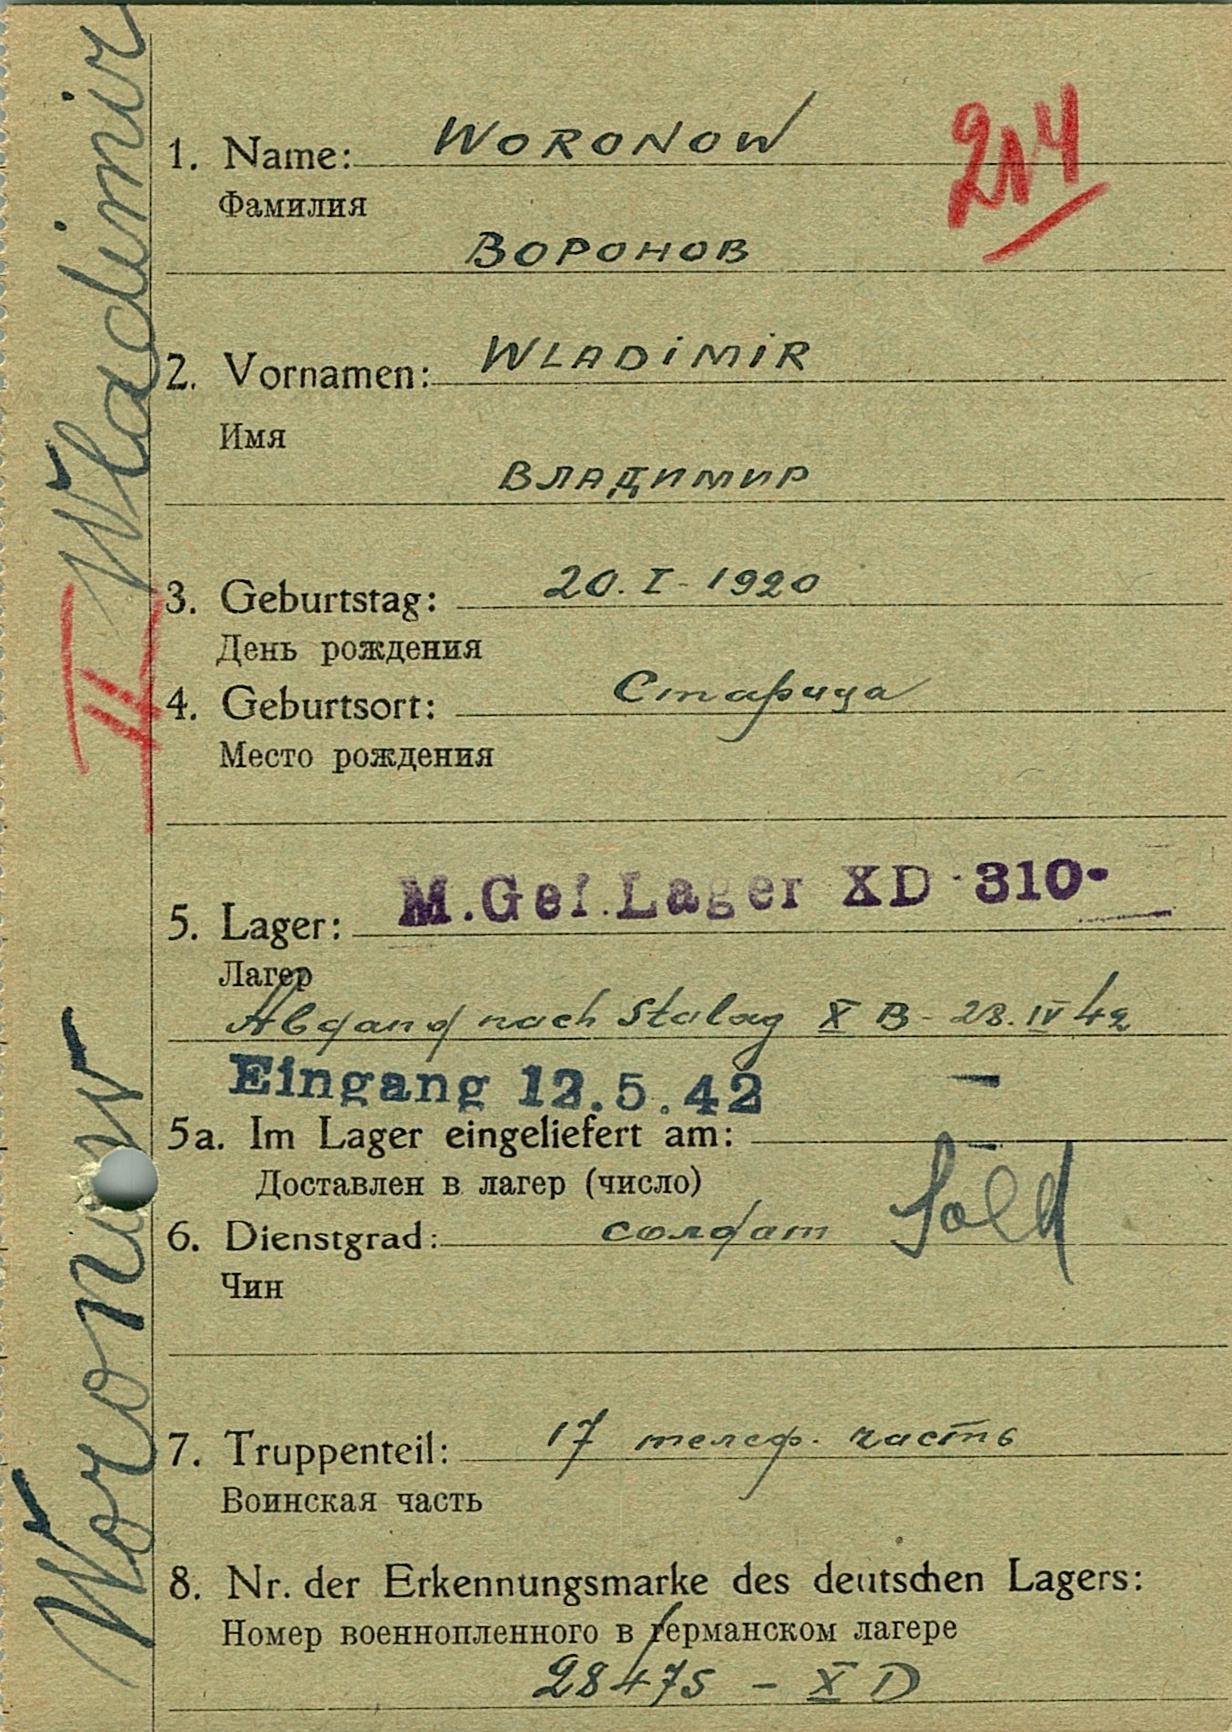 Woronow Wladimir
II
214
1. Name: WORONOW
Фамилия
ВОРОНОВ
2. Vornamen: WLADIMIR
Имя
ВЛАДИМИР
3. Geburtstag: 20. I - 1920
День рождения
4. Geburtsort: Старица
Место рождения
5. Lager: M. Gef. Lager XD - 310 -
Лагер
Abgang nach Stalag X B - 28. IV 42
Eingang 12.5.42
5a. Im Lager eingeliefert am: —
Доставлен в лагер (число)
6. Dienstgrad: солдат Sold
Чин
7. Truppenteil: 17 телеф. часть
Воинская часть
8. Nr. der Erkennungsmarke des deutschen Lagers:
Номер военнопленного в германском лагере
28475 - X D